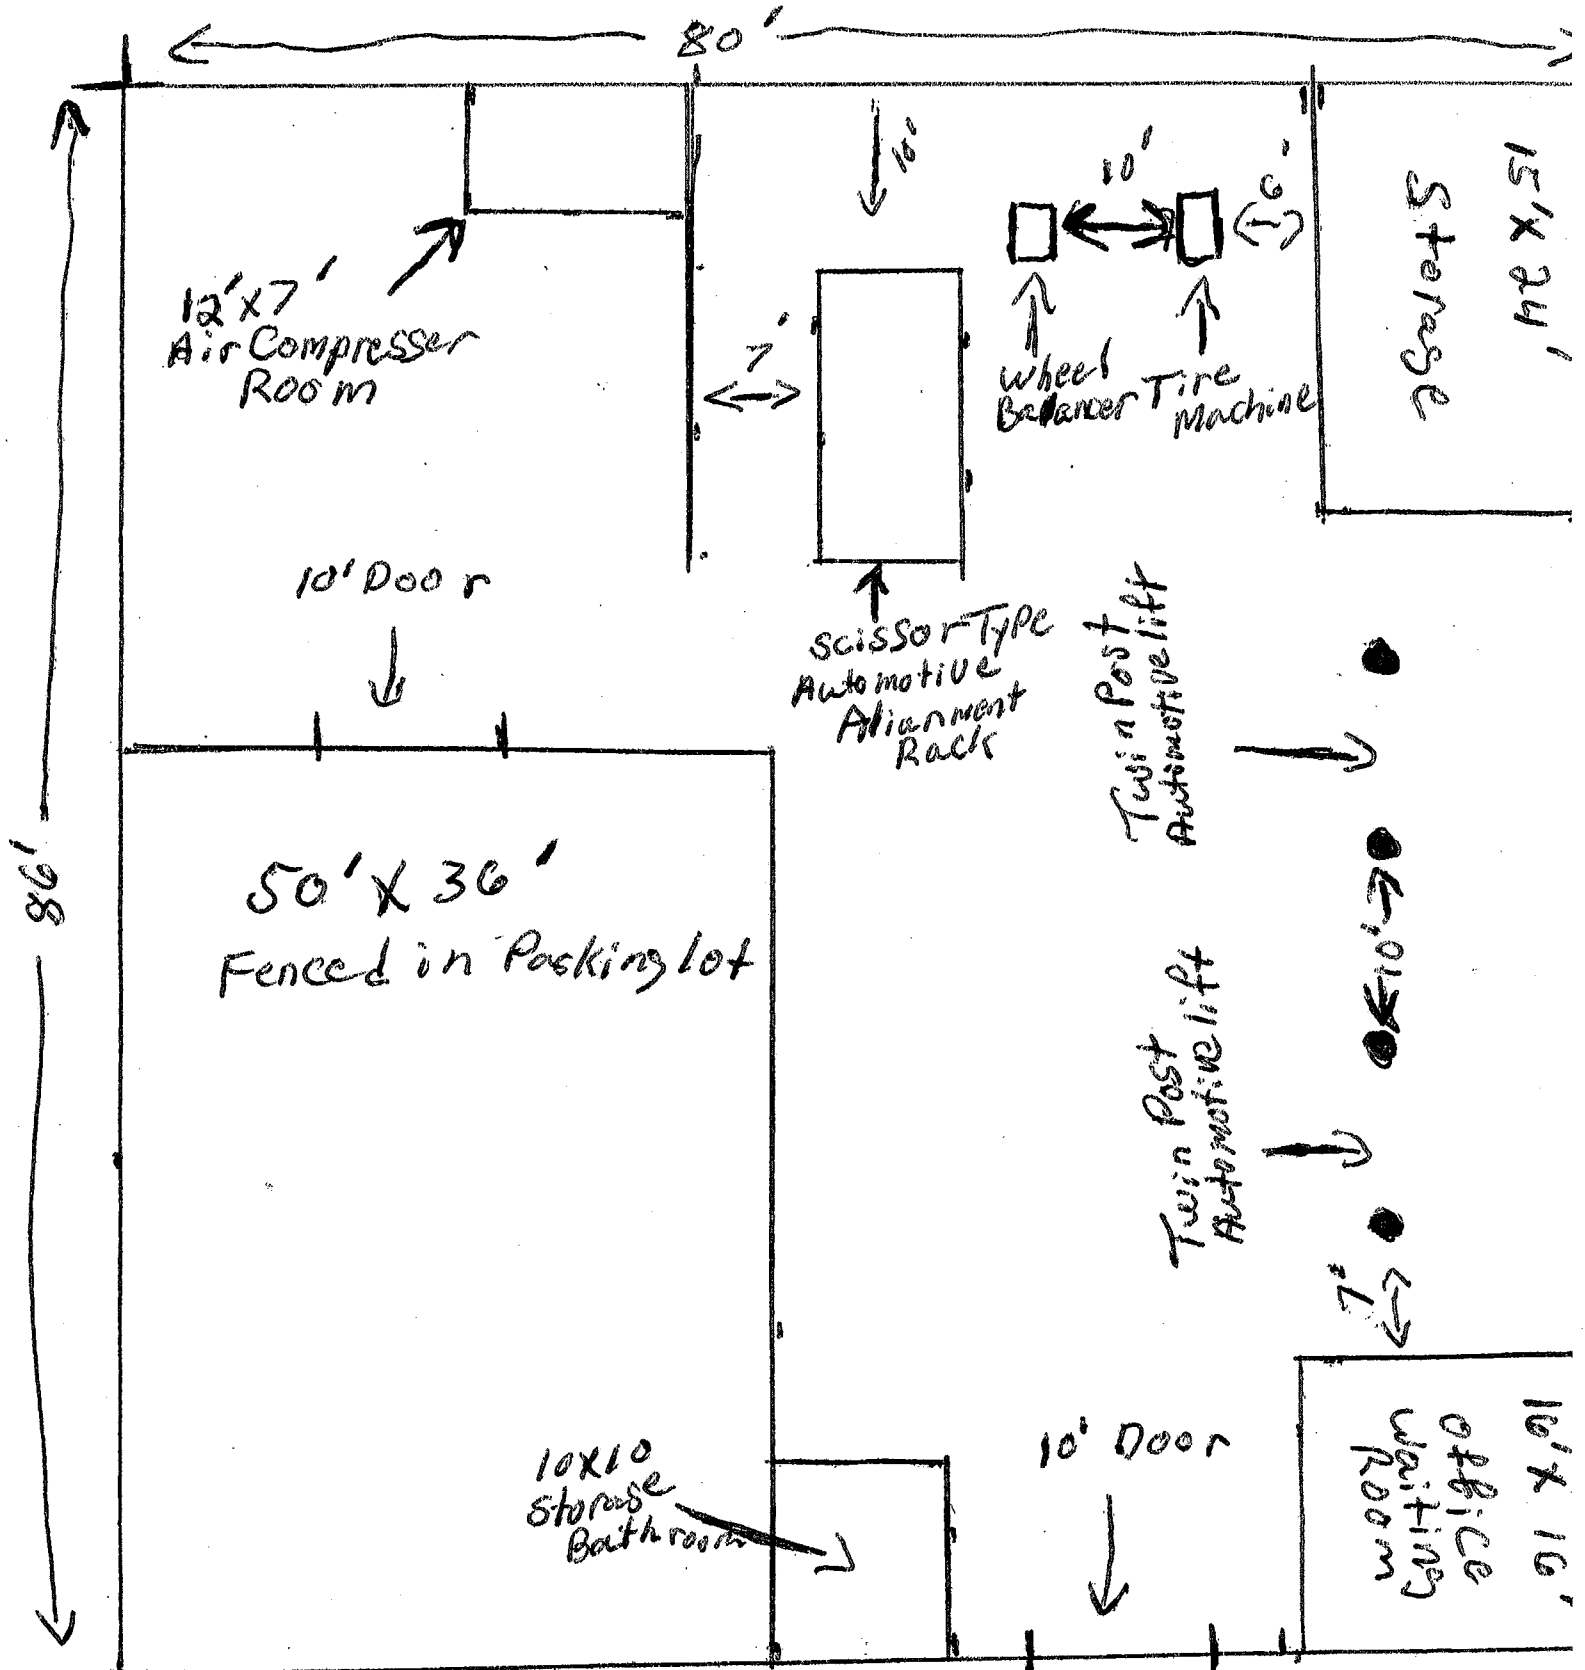 80'
86'
12'x7'
Air Compresser
Room
10'
10'
6'
7'
Wheel
Balancer
Tire
Machine
15'x 24'
Storage
10' Door
Scissor Type
Automotive
Alignment
Rack
Twin Post
Automotive lift
50' x 36'
Fenced in Parking lot
10'
Twin Post
Automotive lift
7'
10x10
Storage
Bathroom
10' Door
16' x 16'
Office
Waiting
Room